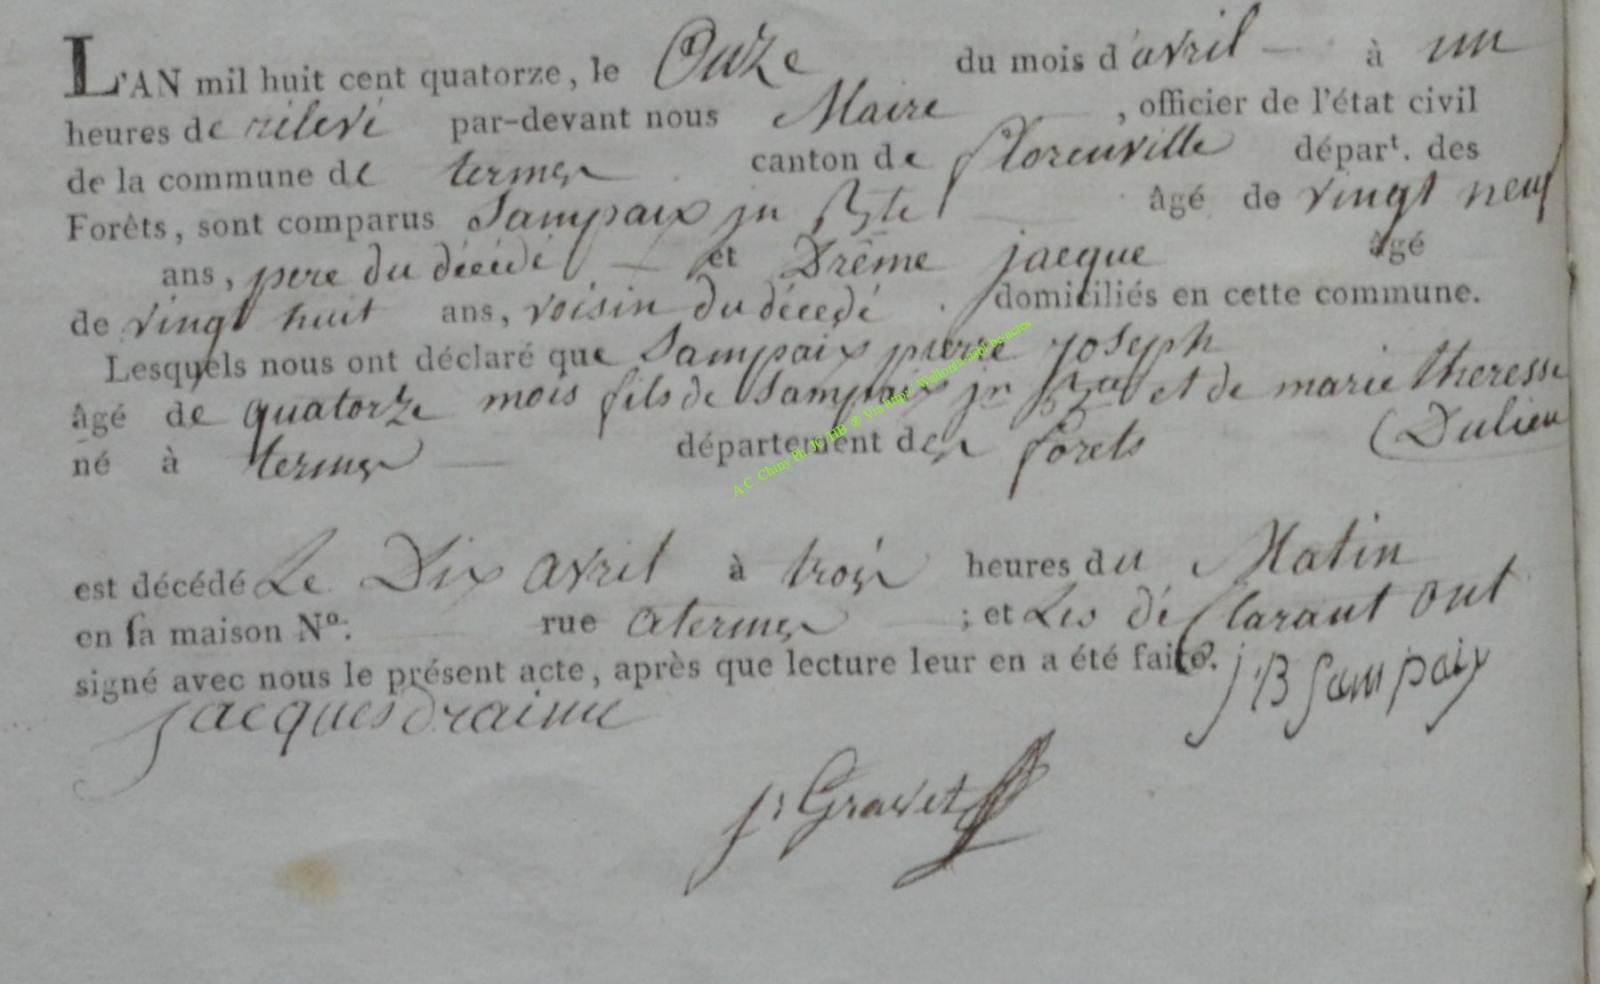 L'AN mil huit cent quatorze, le Onze du mois d'avril à un
heures de rélevé par-devant nous Maire , officier de l'état civil
de la commune de termes canton de florenville départ. des
Forêts, sont comparus Sampaix jn Bte âgé de vingt neuf
ans, pere du décédé et Drême jacque âgé
de vingt huit ans, voisin du décedé . domiciliés en cette commune.
Lesquels nous ont déclaré que Sampaix pierre joseph
âgé de quatorze mois fils de Sampaix jn Bte et de marie theresse
(Dulieu
né à termes département des forets
est décédé Le Dix avril à trois heures du Matin
en sa maison No. rue a termes ; et Les déclarant ont
signé avec nous le présent acte, après que lecture leur en a été faite.
jB Sampaix
jacques draime
j: Gravet
A C Chiny Ph JC HB ® Via